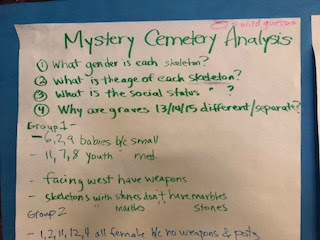 = wild guesses
Mystery Cemetery Analysis
① What gender is each skeleton?
② What is the age of each skeleton?
③ What is the social status " ?
④ Why are graves 13/14/15 different/separate?
Group 1 -
- 6,2,9 babies b/c small
- 11,7,8 youth med.
- facing west have weapons
- skeletons with stones don't have marbles
" marbles " stones
Group 2
- 1,2,11,12,4 all female b/c no weapons & pots